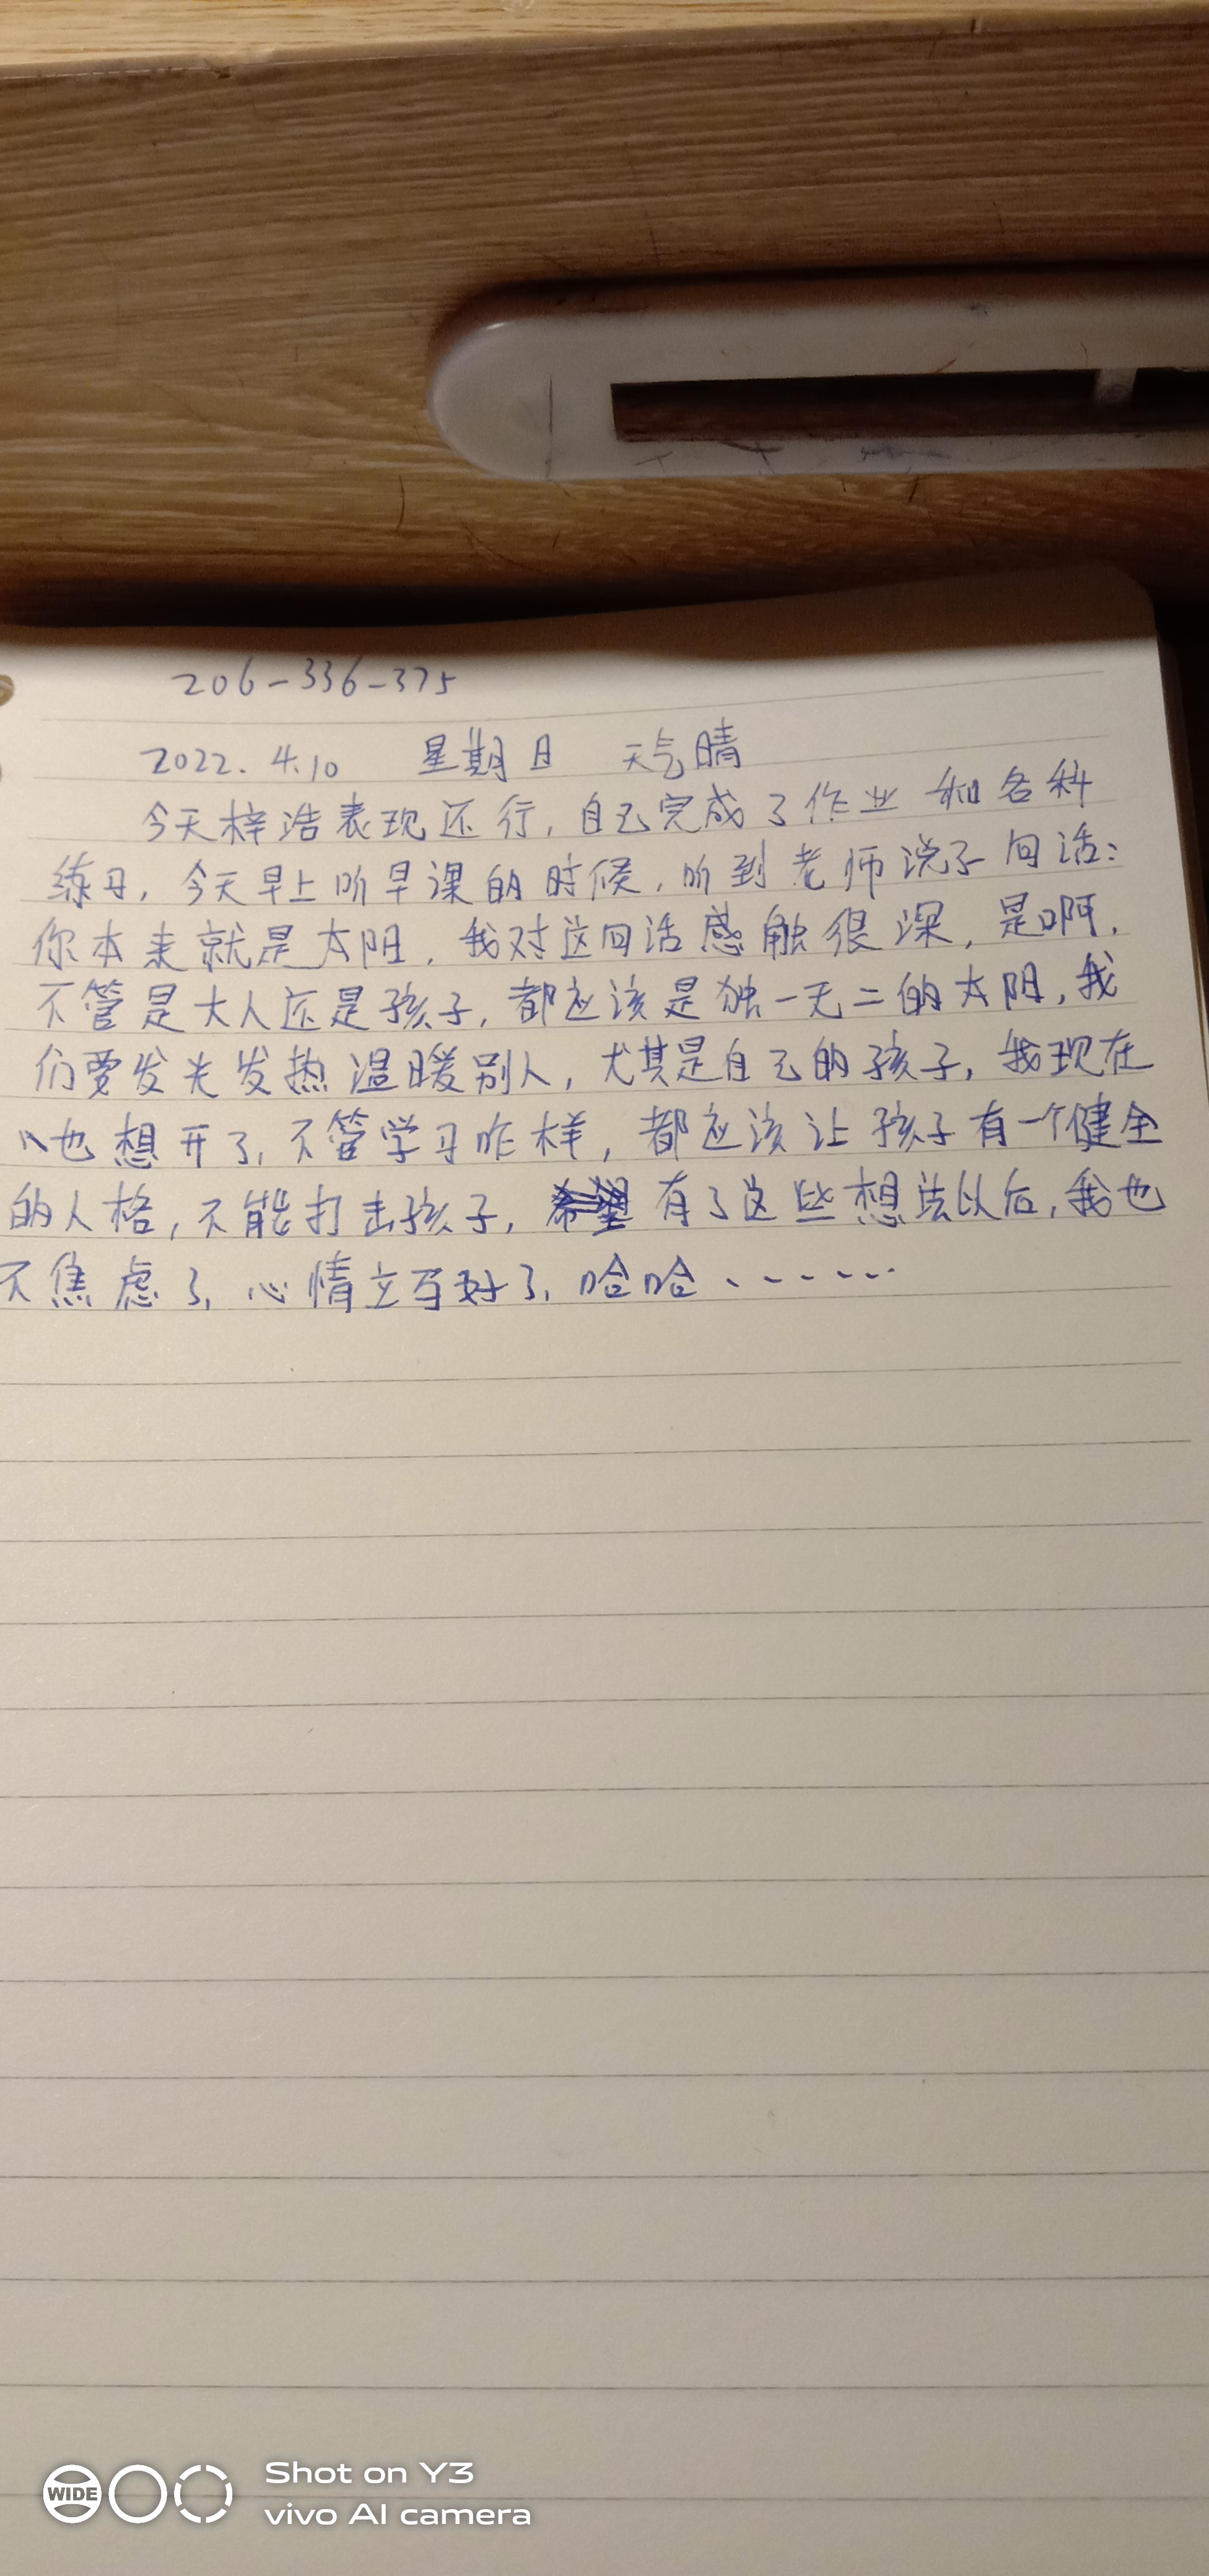 206-336-375
2022.4.10 星期日 天气晴
今天梓浩表现还行,自己完成了作业和各科
练习,今天早上听早课的时候,听到老师说了句话:
你本来就是太阳,我对这句话感触很深,是啊,
不管是大人还是孩子,都应该是独一无二的太阳,我
们要发光发热温暖别人,尤其是自己的孩子,我现在
也想开了,不管学习咋样,都应该让孩子有一个健全
的人格,不能打击孩子,有了这些想法以后,我也
不焦虑了,心情立马好了,哈哈……
WIDE
Shot on Y3
vivo AI camera